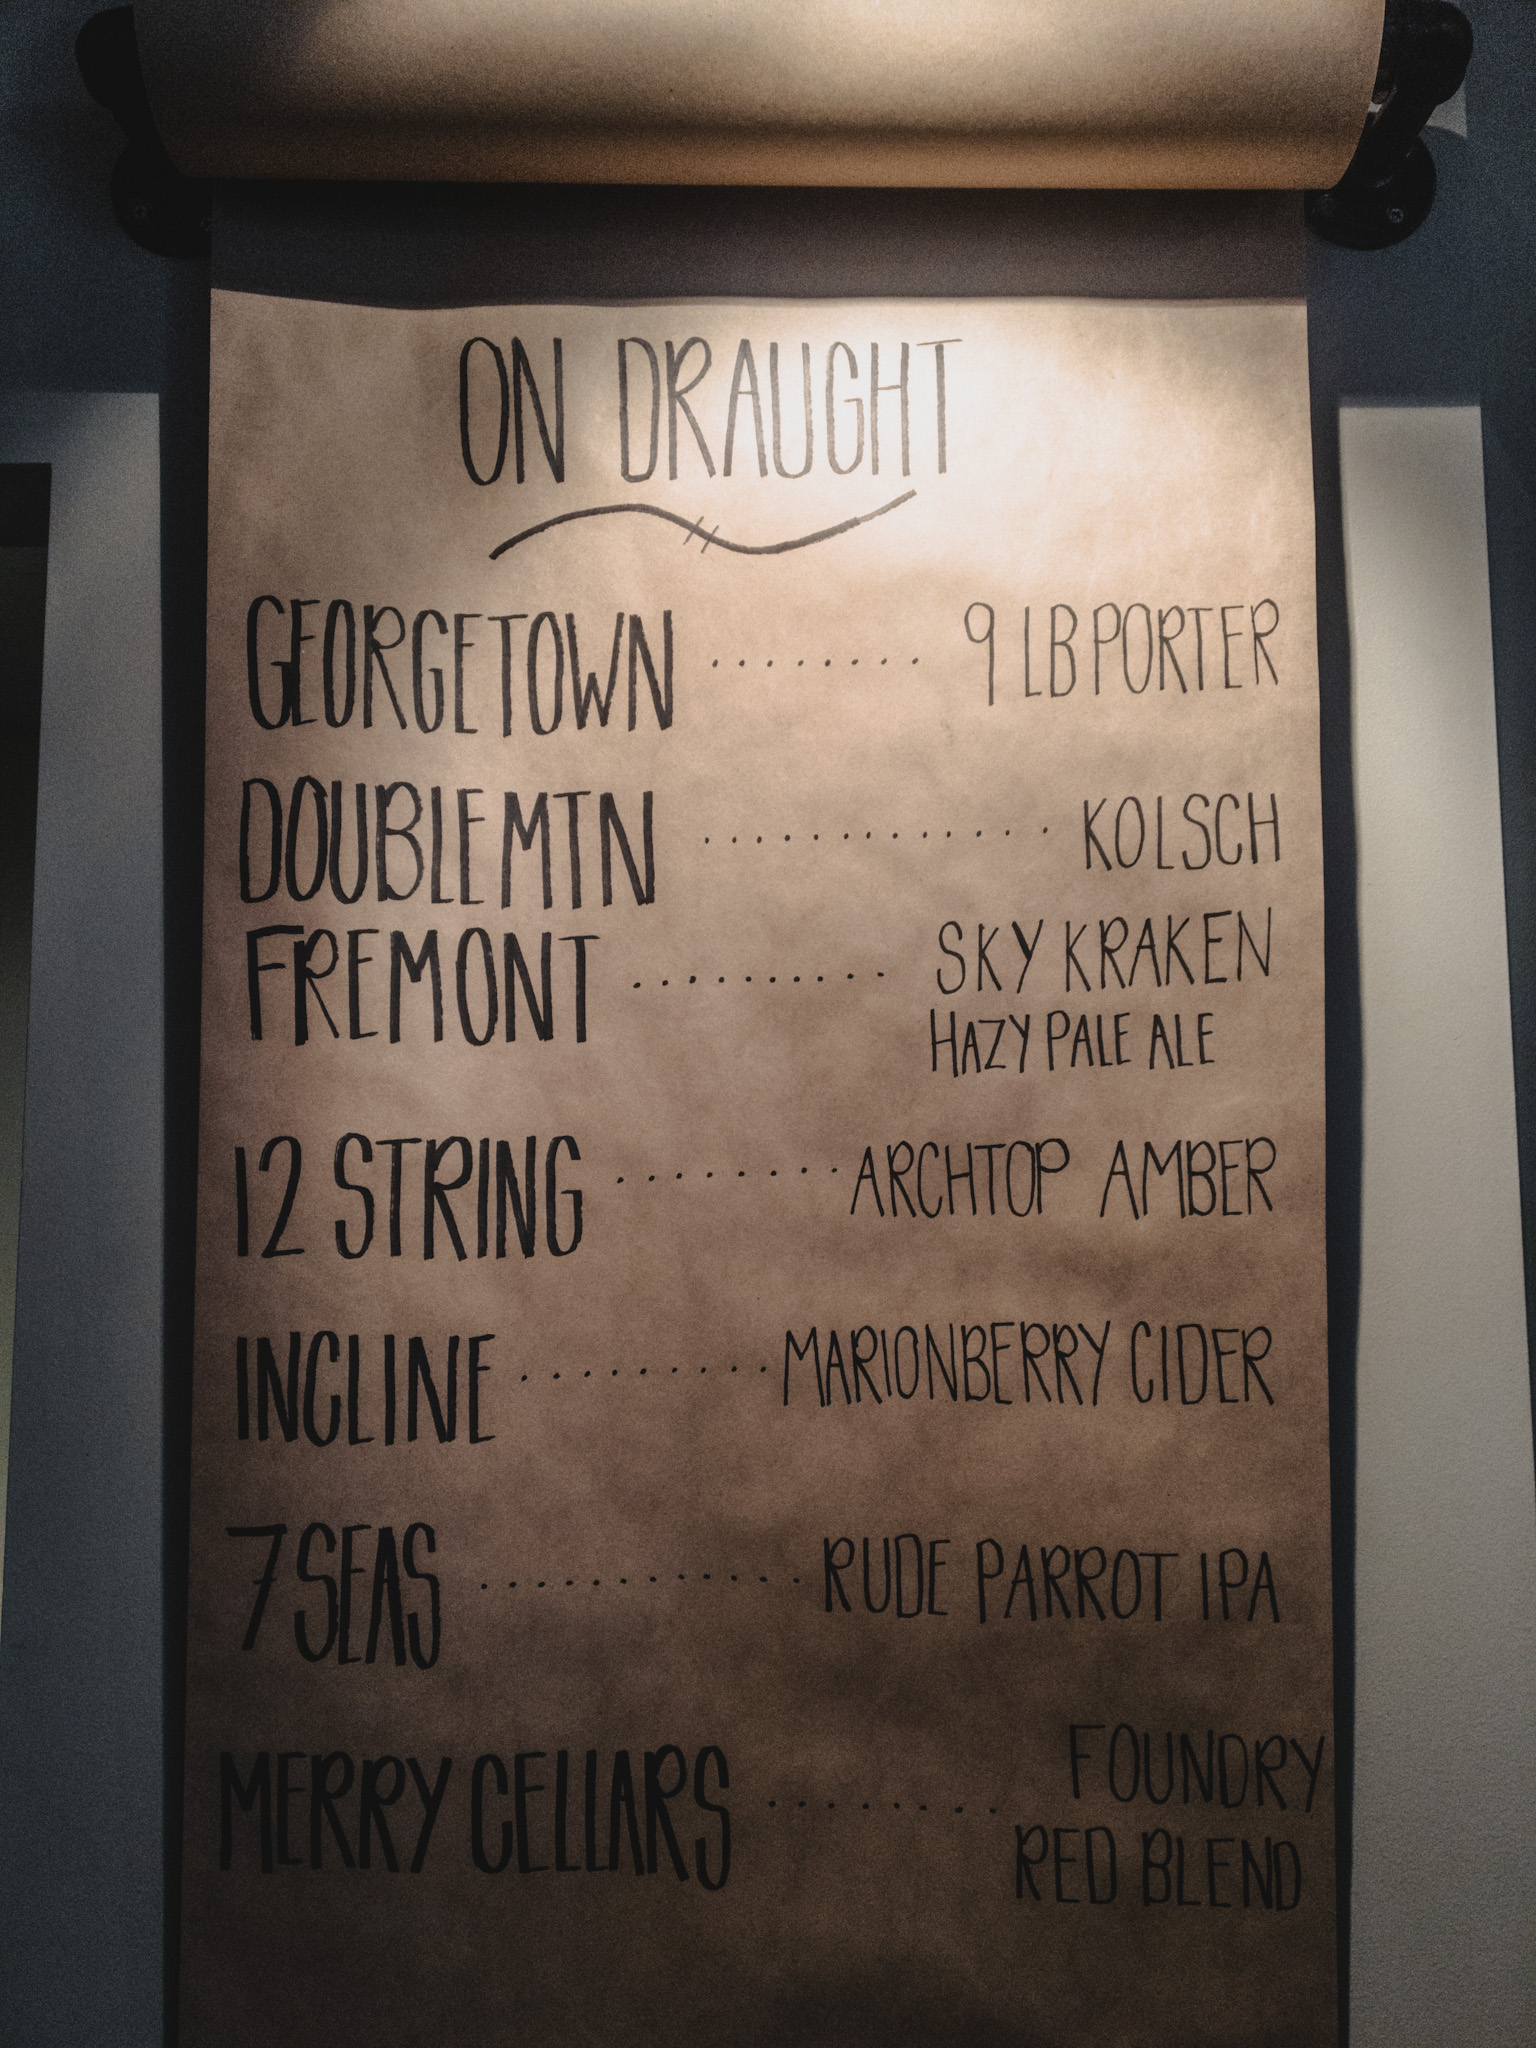 ON DRAUGHT
GEORGETOWN ........ 9 LB PORTER
DOUBLE MTN ............. KOLSCH
FREMONT .......... SKY KRAKEN
HAZY PALE ALE
12 STRING ........ ARCHTOP AMBER
INCLINE ......... MARIONBERRY CIDER
7 SEAS ............ RUDE PARROT IPA
MERRY CELLARS ........ FOUNDRY
RED BLEND